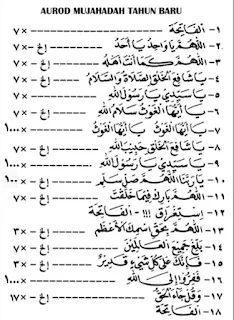 AUROD MUJAHADAH TAHUN BARU
١- الفَاتِحَة ---------- ×٧
٢- اَللّٰهُمَّ يَا وَاحِدُ يَا أَحَدُ --- إلخ - ×٧
٣- اَللّٰهُمَّ كَمَا أَنْتَ أَهْلُهُ --- إلخ - ×٧
٤- يَا شَافِعَ الْخَلْقِ الصَّلَاةُ وَالسَّلَامُ --- إلخ - ×٧
٥- يَا سَيِّدِي يَا رَسُولَ اللهِ ---------- ×٧
٦- يَا أَيُّهَا الْغَوْثُ سَلَامُ اللهِ --- إلخ - ×٧
٧- يَا أَيُّهَا الْغَوْثُ يَا أَيُّهَا الْغَوْثُ ... ×١٠٠٠
٨- يَا شَافِعَ الْخَلْقِ حَبِيبَ اللهِ --- إلخ - ×٧
٩- يَا سَيِّدِي يَا رَسُولَ اللهِ ------ ×١٠٠٠
١٠- يَا رَبَّنَا اللّٰهُمَّ صَلِّ سَلِّمِ --- إلخ - ×١٠٠
١١- اَللّٰهُمَّ بَارِكْ فِيمَا خَلَقْتَ --- إلخ - ×٧
١٢- اِسْتِغْرَاقْ !!! - الفَاتِحَة
١٣- اَللّٰهُمَّ بِحَقِّ اسْمِكَ الْأَعْظَمِ --- إلخ - ×٣
١٤- بَلِّغْ جَمِيعَ الْعَالَمِينَ --- إلخ - ×٧
١٥- فَإِنَّكَ عَلَى كُلِّ شَيْءٍ قَدِيرٌ --- إلخ - ×٣
١٦- فَفِرُّوا إِلَى اللهِ ---------- ×١٠٠٠
١٧- وَقُلْ جَاءَ الْحَقُّ --- إلخ - ×١٧
١٨- الفَاتِحَة